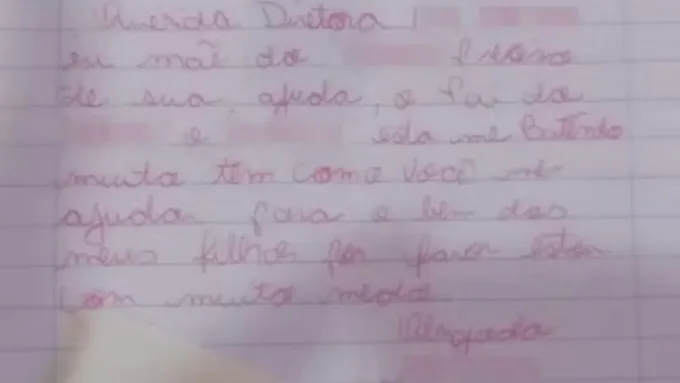 Querida Diretora
eu mãe do preciso
de sua ajuda, o Pai da
e esta me Batendo
muito tem como você me
ajuda para o bem dos
meus filhos por favor estou
com muito medo
Obrigada